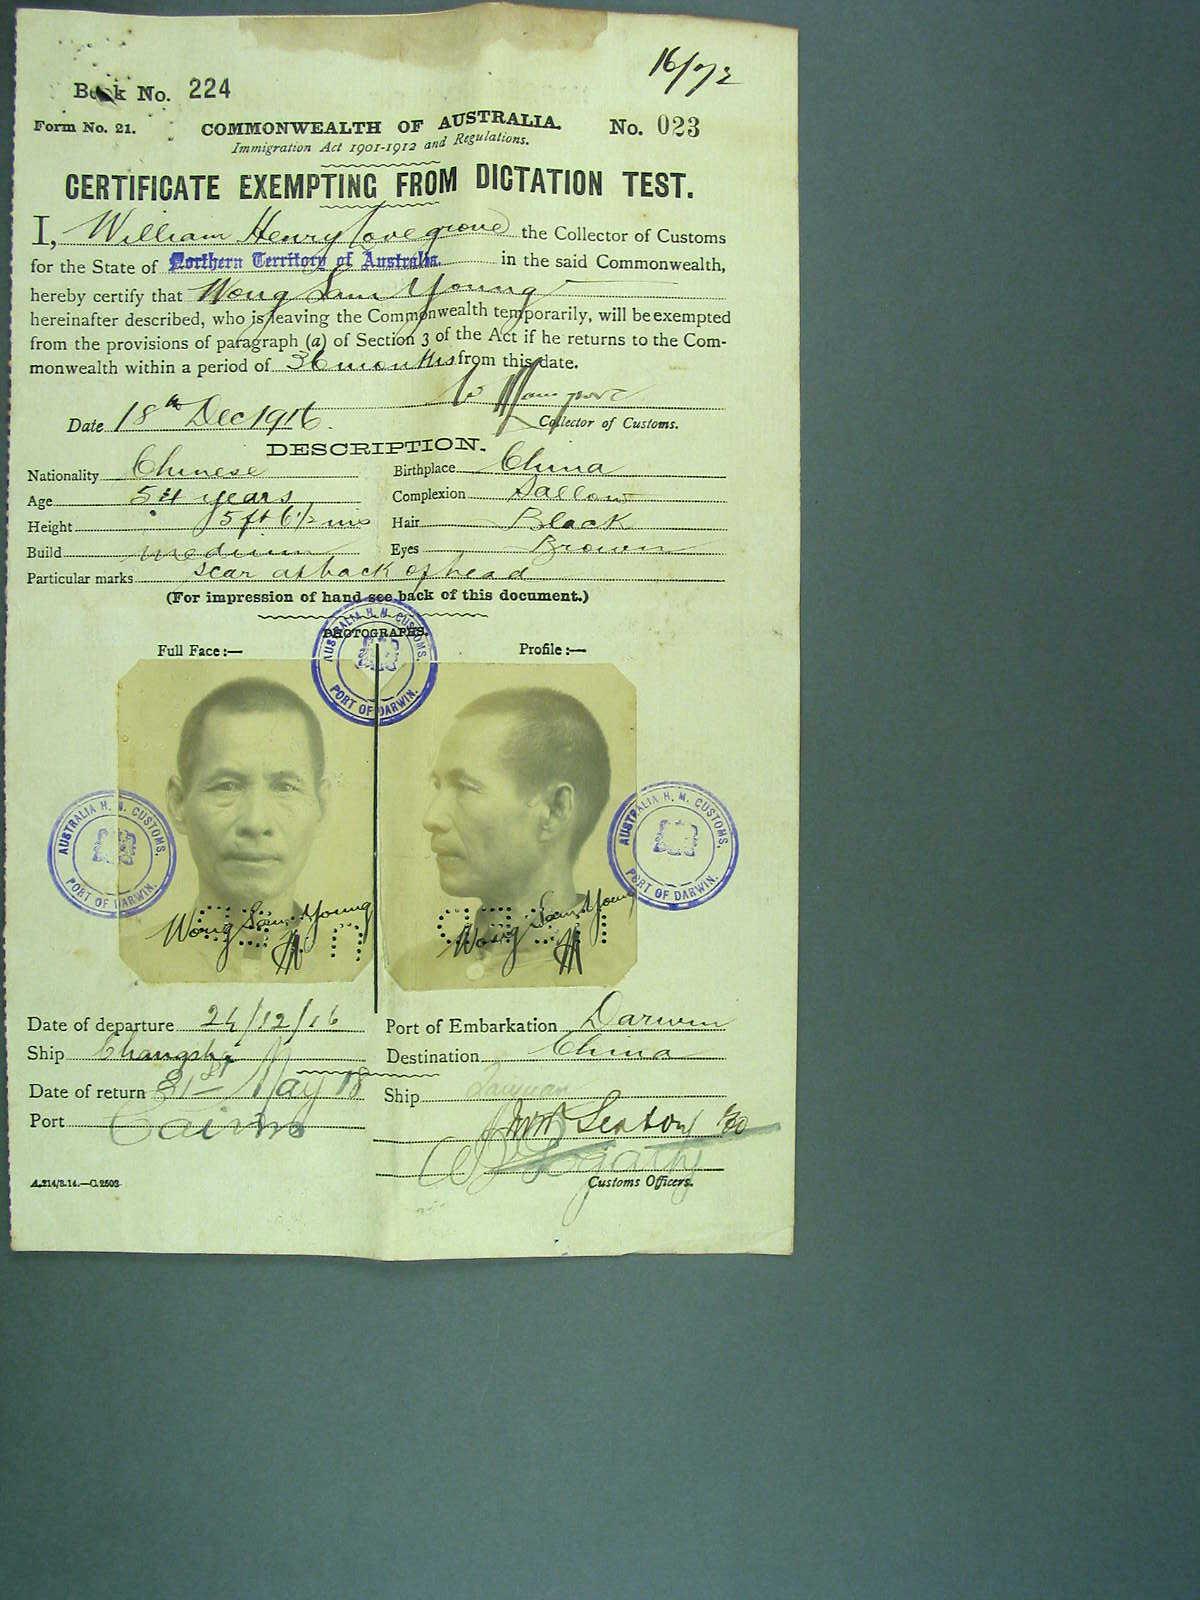 16/72
Book No. 224
Form No. 21.
COMMONWEALTH OF AUSTRALIA.
No. 023
Immigration Act 1901-1912 and Regulations.
CERTIFICATE EXEMPTING FROM DICTATION TEST.
I, William Henry Lovegrove the Collector of Customs
for the State of Northern Territory of Australia. in the said Commonwealth,
hereby certify that Wong Sam Young
hereinafter described, who is leaving the Commonwealth temporarily, will be exempted
from the provisions of paragraph (a) of Section 3 of the Act if he returns to the Com-
monwealth within a period of 36 months from this date.
Date 18th Dec 1916.
Collector of Customs.
DESCRIPTION.
Nationality Chinese Birthplace China
Age 54 years Complexion Sallow
Height 5 ft 6 1/2 ins Hair Black
Build medium Eyes Brown
Particular marks scar at back of head
(For impression of hand see back of this document.)
PHOTOGRAPHS.
Full Face:— Profile:—
AUSTRALIA H. M. CUSTOMS. PORT OF DARWIN.
AUSTRALIA H. M. CUSTOMS. PORT OF DARWIN.
AUSTRALIA H. M. CUSTOMS. PORT OF DARWIN.
Wong Sam Young
Wong Sam Young
Date of departure 24/12/16 Port of Embarkation Darwin
Ship Changsha Destination China
Date of return 31st May 18 Ship Taiyuan
Port Cairns
Sexton
Fogarty
A.214/3.14.—C.2503 Customs Officers.